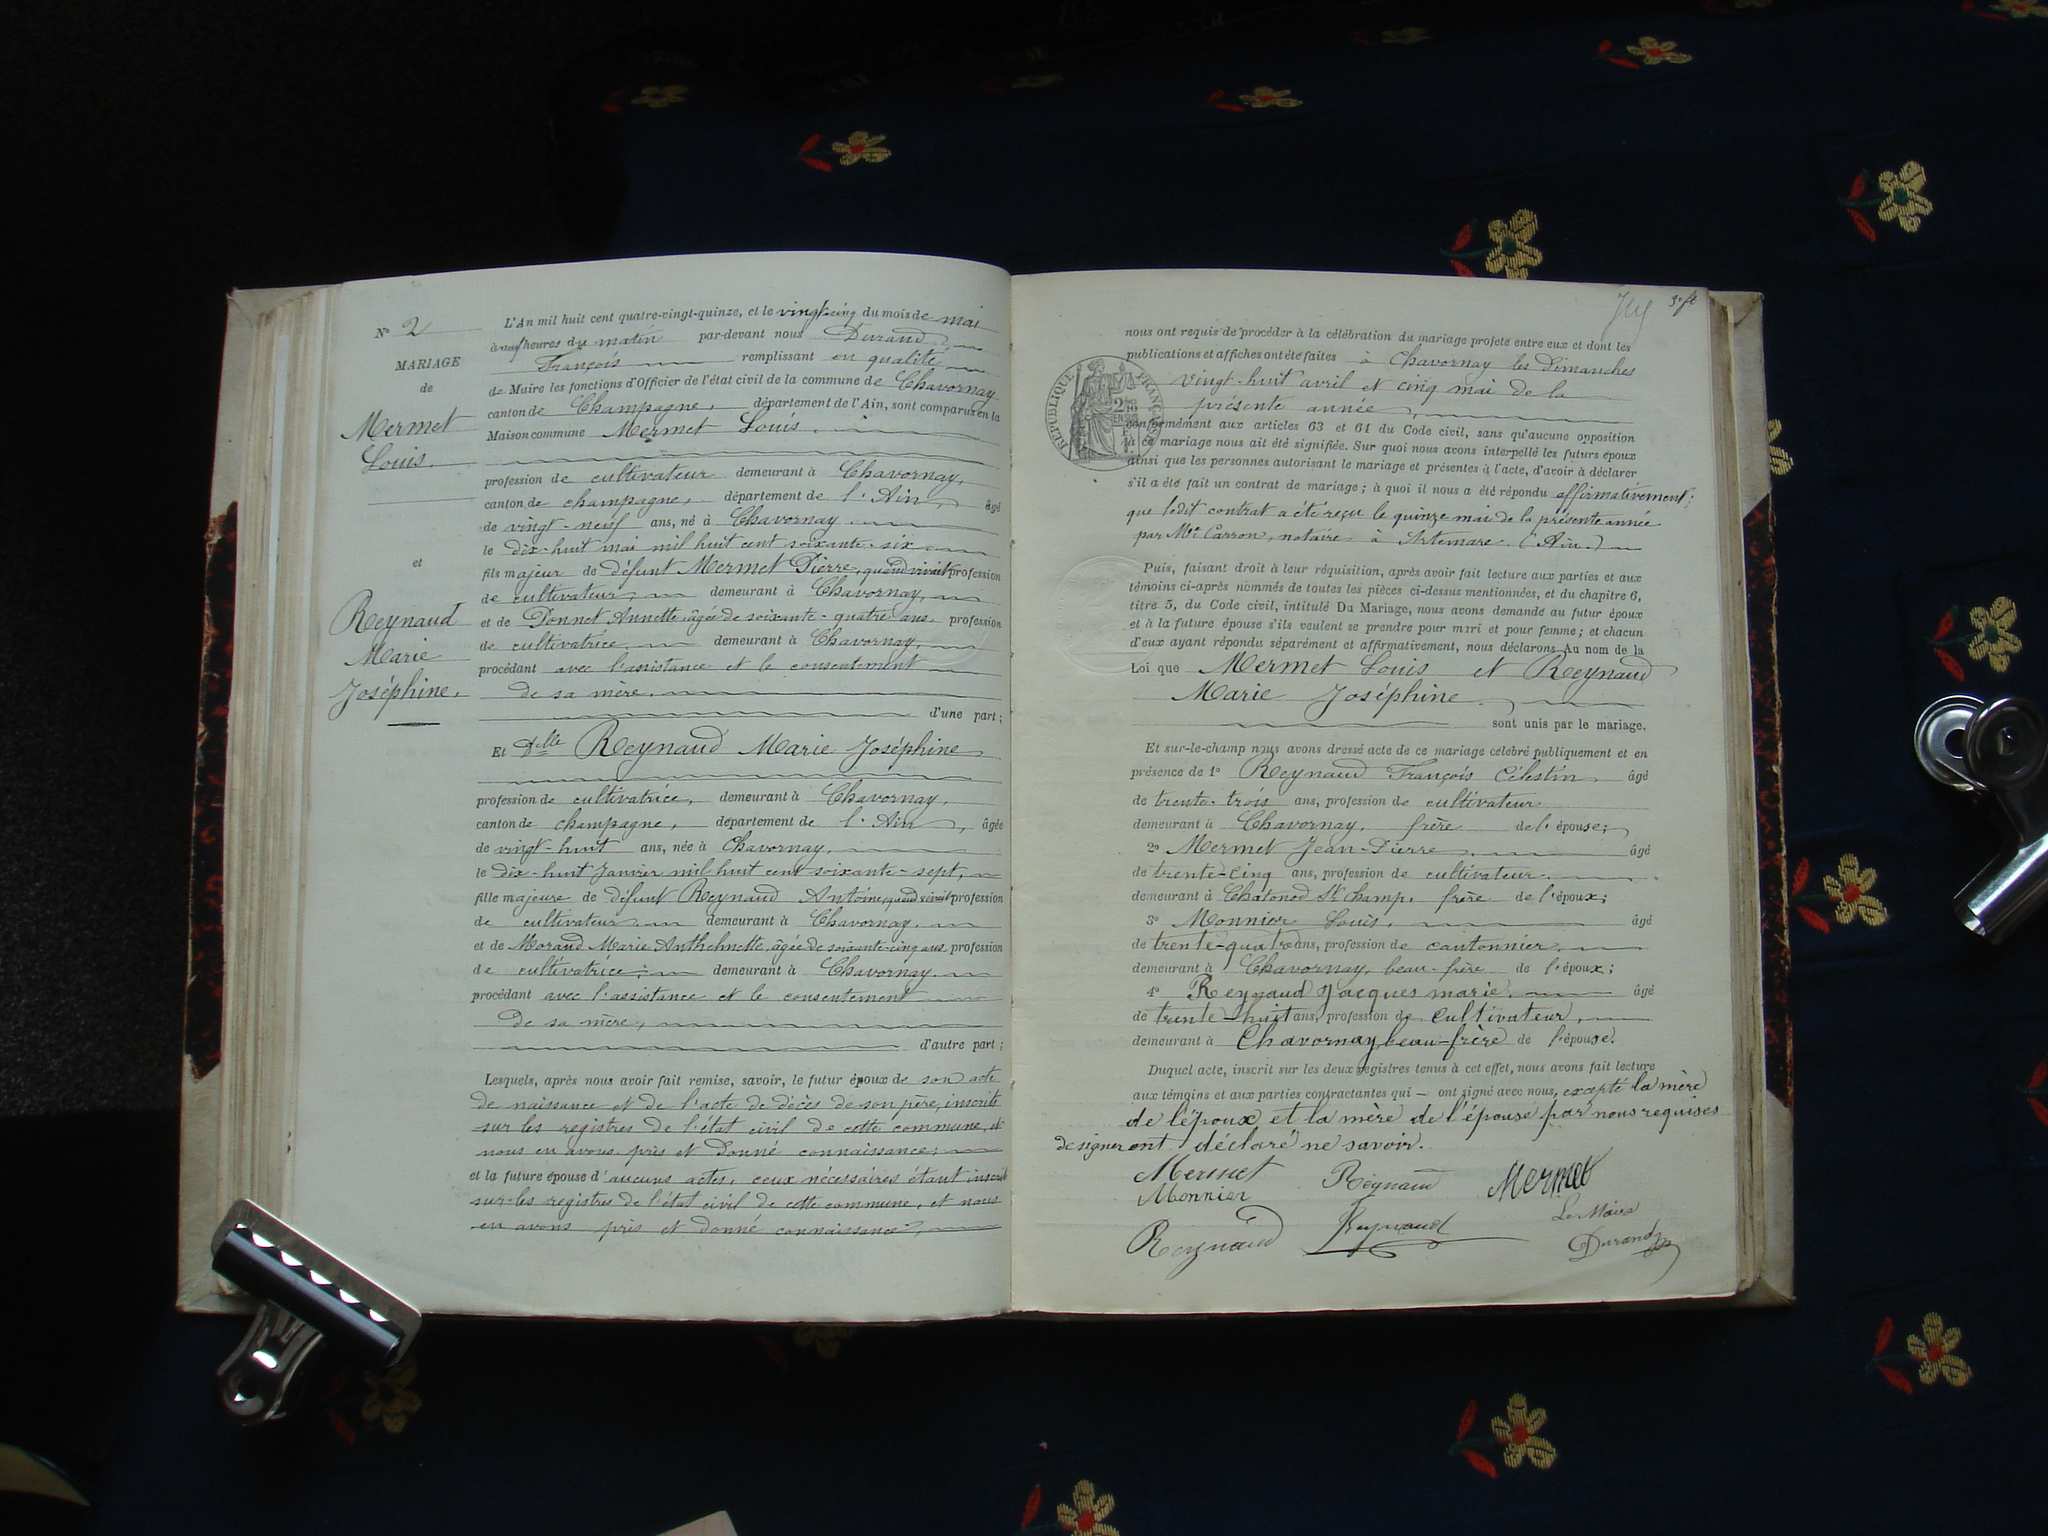 N° 2
MARIAGE
de
Mermet
Louis.
et
Reynaud
Marie
Joséphine.
L'An mil huit cent quatre-vingt-quinze, et le vingt-cinq du mois de mai
à neuf heures du matin par-devant nous Durand
François remplissant en qualité
de Maire les fonctions d'Officier de l'état civil de la commune de Chavornay
canton de Champagne, département de l'Ain, sont comparus en la
Maison commune Mermet Louis.
profession de cultivateur demeurant à Chavornay,
canton de champagne, département de l'Ain, âgé
de vingt-neuf ans, né à Chavornay
le dix-huit mai mil huit cent soixante-six
fils majeur de défunt Mermet Pierre, quand vivait profession
de cultivateur, demeurant à Chavornay,
et de Donnet Annette, âgée de soixante-quatre ans, profession
de cultivatrice, demeurant à Chavornay,
procédant avec l'assistance et le consentement
de sa mère.
d'une part;
Et Dlle Reynaud Marie Joséphine
profession de cultivatrice, demeurant à Chavornay,
canton de champagne, département de l'Ain, âgée
de vingt-huit ans, née à Chavornay,
le dix-huit Janvier mil huit cent soixante-sept,
fille majeure de défunt Reynaud Antoine, quand vivait profession
de cultivateur, demeurant à Chavornay,
et de Morand Marie Anthelmette, âgée de soixante-cinq ans profession
de cultivatrice; demeurant à Chavornay,
procédant avec l'assistance et le consentement
de sa mère,
d'autre part;
Lesquels, après nous avoir fait remise, savoir, le futur époux de son acte
de naissance et de l'acte de décès de son père, inscrits
sur les registres de l'état civil de cette commune, et
nous en avons pris et donné connaissance;
et la future épouse d'aucuns actes, ceux nécessaires étant inscrits
sur les registres de l'état civil de cette commune, et nous
en avons pris et donné connaissance,
nous ont requis de procéder à la célébration du mariage projeté entre eux et dont les
publications et affiches ont été faites à Chavornay les Dimanches
vingt-huit avril et cinq mai de la
présente année,
RÉPUBLIQUE FRANÇAISE
conformément aux articles 63 et 64 du Code civil, sans qu'aucune opposition
à ce mariage nous ait été signifiée. Sur quoi nous avons interpellé les futurs époux
ainsi que les personnes autorisant le mariage et présentes à l'acte, d'avoir à déclarer
s'il a été fait un contrat de mariage; à quoi il nous a été répondu affirmativement;
que ledit contrat a été reçu le quinze mai de la présente année
par Me Carron, notaire à Artemare (Ain.)
Puis, faisant droit à leur réquisition, après avoir fait lecture aux parties et aux
témoins ci-après nommés de toutes les pièces ci-dessus mentionnées, et du chapitre 6,
titre 5, du Code civil, intitulé Du Mariage, nous avons demandé au futur époux
et à la future épouse s'ils veulent se prendre pour mari et pour femme; et chacun
d'eux ayant répondu séparément et affirmativement, nous déclarons Au nom de la
Loi que Mermet Louis et Reynaud
Marie Joséphine
sont unis par le mariage.
Et sur-le-champ nous avons dressé acte de ce mariage célébré publiquement et en
présence de 1° Reynaud François Célestin âgé
de trente-trois ans, profession de cultivateur
demeurant à Chavornay, frère de l'épouse;
2° Mermet Jean-Pierre, âgé
de trente-cinq ans, profession de cultivateur
demeurant à Chatonod St Champ, frère de l'époux;
3° Monnier Louis, âgé
de trente-quatre ans, profession de cantonnier,
demeurant à Chavornay, beau-frère de l'époux;
4° Reynaud Jacques marie. âgé
de trente-huit ans, profession de cultivateur,
demeurant à Chavornay, beau-frère de l'épouse.
Duquel acte, inscrit sur les deux registres tenus à cet effet, nous avons fait lecture
aux témoins et aux parties contractantes qui – ont signé avec nous, excepté la mère
de l'époux et la mère de l'épouse par nous requises
de signer ont déclaré ne savoir.
Mermet Reynaud Mermet
Monnier
Le Maire
Reynaud Reynaud Durand